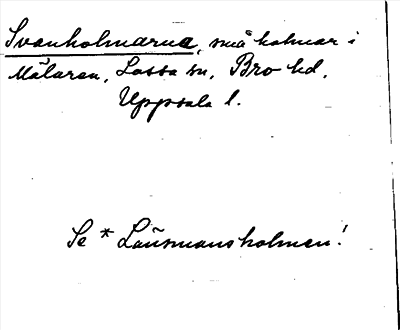 Svanholmarna, små holmar i
Mälaren, Lossa sn, Bro hd,
Uppsala l.
Se * Lausmansholmen!